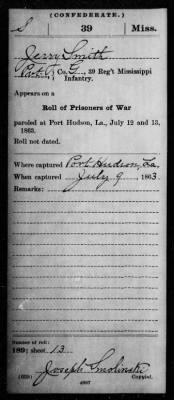 (CONFEDERATE.)
S 39 Miss.
Jerry Smith
Co. G, 39 Reg't Mississippi
Infantry.
Appears on a
Roll of Prisoners of War
paroled at Port Hudson, La., July 12 and 13,
1863.
Roll not dated.
Where captured Port Hudson, La.
When captured July 9 1863
Remarks:
Number of roll:
189; sheet 13
Joseph Smolinski
Copyist.